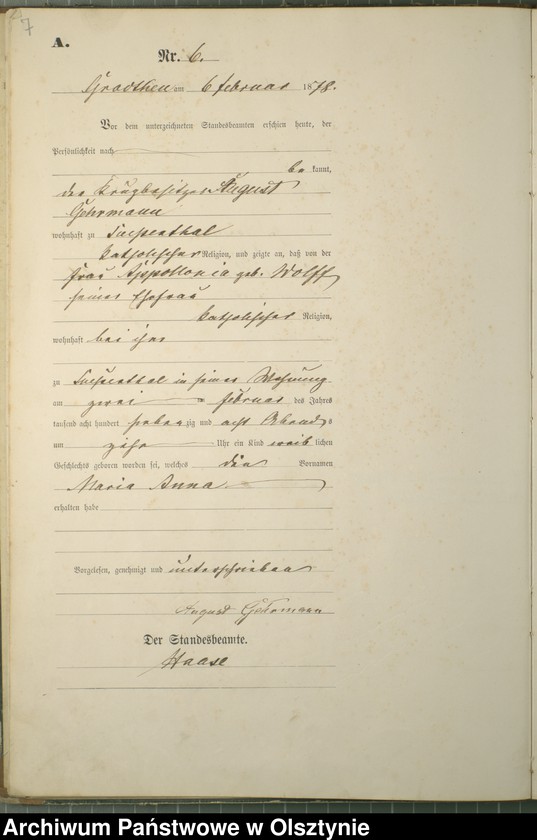 7
A.
Nr. 6.
Grodtken am 6 Februar 1878.
Vor dem unterzeichneten Standesbeamten erschien heute, der
Persönlichkeit nach
bekannt,
der Krugbesitzer August
Gehrmann
wohnhaft zu
katholischer Religion, und zeigte an, daß von der
Frau Appollonia geb. Wolff
seiner Ehefrau
katholischer Religion,
wohnhaft bei ihm
zu in seiner Wohnung
am zwei Februar des Jahres
tausend acht hundert siebenzig und acht Abends
um zehn Uhr ein Kind weiblichen
Geschlechts geboren worden sei, welches die Vornamen
Maria Anna
erhalten habe
Vorgelesen, genehmigt und unterschrieben
August Gehrmann
Der Standesbeamte.
Haase
Archiwum Państwowe w Olsztynie